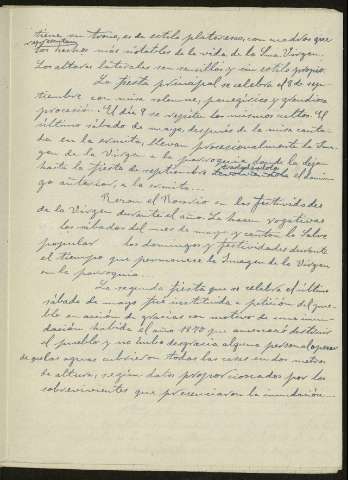 tiene su trono, es de estilo plateresco, con cuadros que
representan
los hechos más notables de la vida de la Sma. Virgen.
Los altares laterales son sencillos y sin estilo propio.
La fiesta principal se celebra el 8 de sep-
tiembre con misa solemne, panegírico y grandiosa
procesión. El día 9 se repiten los mismos cultos. El
último sábado de mayo, después de la misa canta-
da en la ermita, llevan procesionalmente la Ima-
gen de la Virgen a la parroquia donde la dejan
hasta la fiesta de septiembre trasladándola el domin-
go anterior, a la ermita...
Rezan el Rosario en las festividades
de la Virgen durante el año. La hacen rogativas
los sábados del mes de mayo y cantan la Salve
popular los domingos y festividades durante
el tiempo que permanece la Imagen de la Virgen
en la parroquia.
La segunda fiesta que se celebra el último
sábado de mayo fué instituida a petición del pue-
blo en acción de gracias con motivo de una inun-
dación habida el año 1870 que amenazó destruir
el pueblo y no hubo desgracia alguna personal a pesar
de que las aguas cubrieron todas las casas en dos metros
de altura, según datos proporcionados por los
sobrevivientes que presenciaron la inundación...